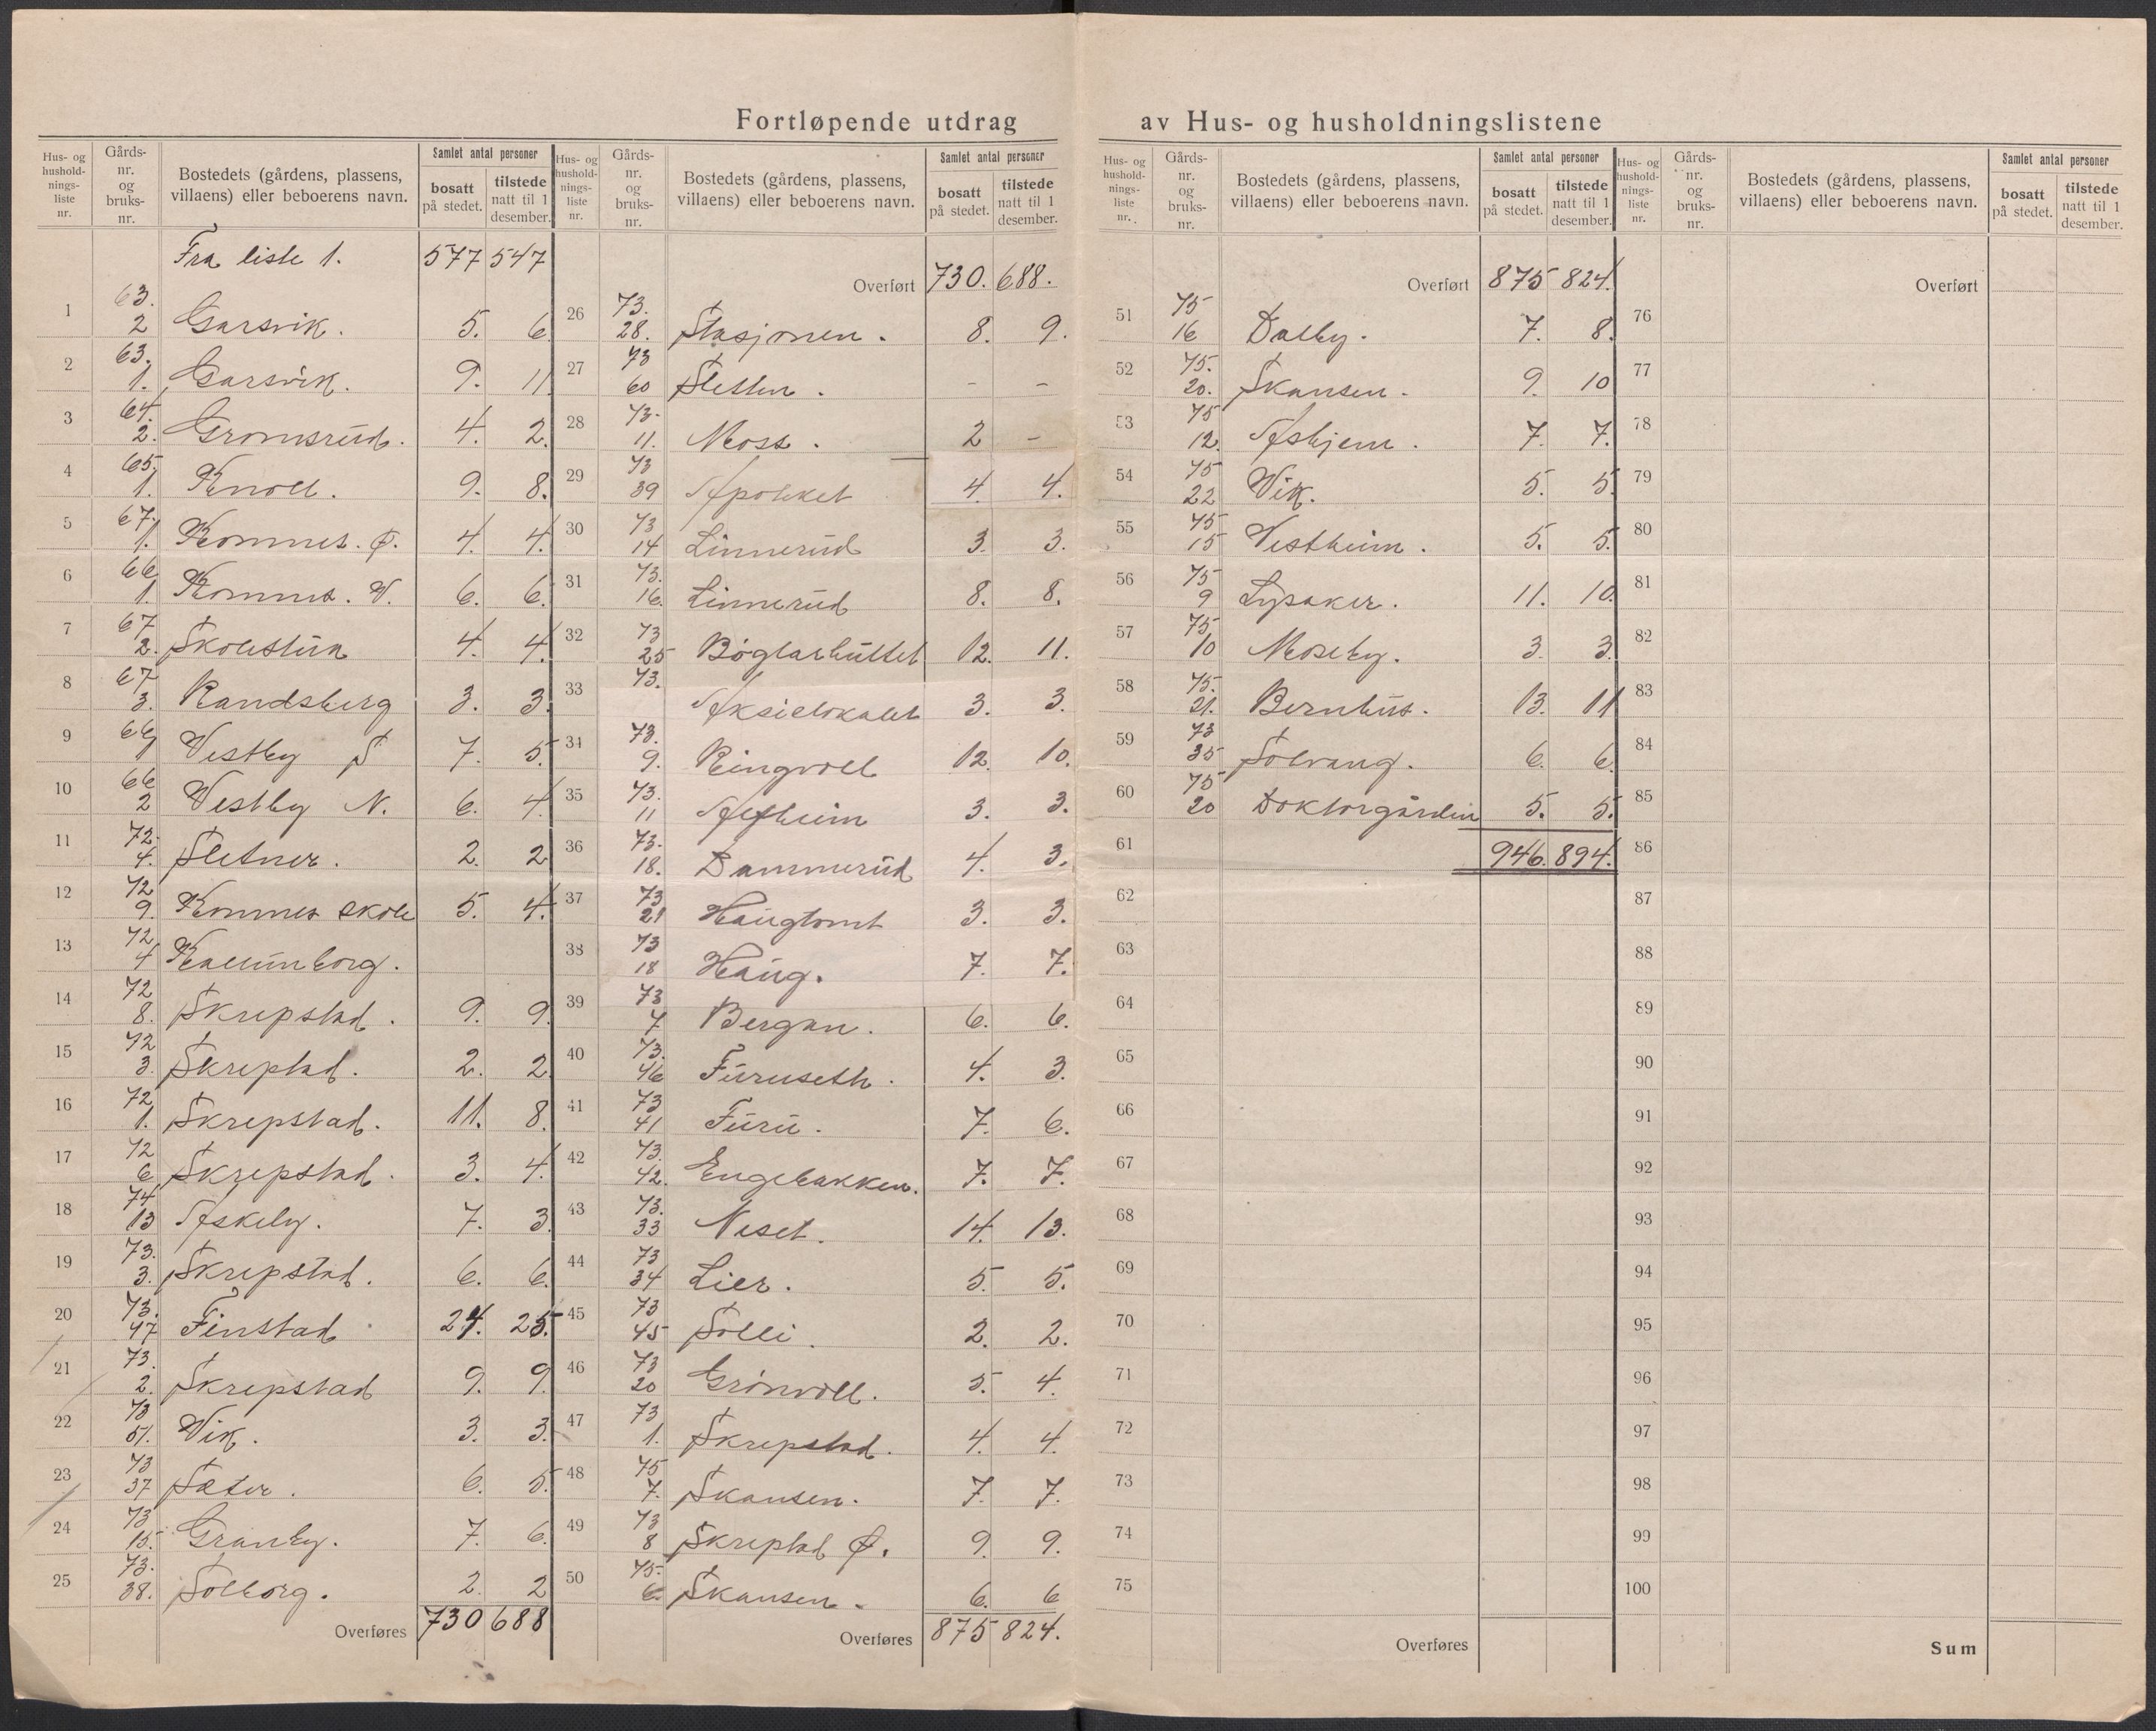 Fortløpende utdrag av Hus- og husholdningslistene
Hus- og husholdnings-liste nr. Gårds-nr. og bruks-nr. Bostedets (gårdens, plassens, villaens) eller beboerens navn. Samlet antal personer bosatt på stedet. tilstede natt til 1 desember.
Fra liste 1. 577 547
1 63. 2 Garsvik. 5. 6
2 63. 1. Garsvik. 9. 11
3 64. 2. Gromsrud. 4. 2.
4 65 1. Knoll. 9. 8.
5 67. 1. Komnes. Ø. 4. 4.
6 66 1. Komnes. V. 6. 6.
7 67 2. Skolestua 4. 4.
8 67 3. Randsberg 3. 3.
9 66 1 Vestby S 7. 5.
10 66 2 Vestby N. 6. 4.
11 72. 4. Sletner. 2. 2
12 72 9. Komnes skole 5. 4.
13 72 4 Kallumborg.
14 72 8. Skrepstad. 9. 9.
15 72 3. Skreptad. 2. 2
16 72 1. Skrepstad. 11. 8.
17 72 6 Skrepstad. 3. 4.
18 74 13 Askeby. 7. 3.
19 73. 3. Skrepstad. 6. 6.
20 73. 47 Finstad 24. 25.
21 73. 2. Skrepstad 9. 9.
22 73 51. Vik. 3. 3.
23 73 37 Sæter. 6. 5.
24 73 15. Granby. 7. 6.
25 73. 38. Solborg. 2. 2
Overføres 730 688
Hus- og husholdnings-liste nr. Gårds-nr. og bruks-nr. Bostedets (gårdens, plassens, villaens) eller beboerens navn. Samlet antal personer bosatt på stedet. tilstede natt til 1 desember.
Overført 730. 688.
26 73. 28. Stasjonen. 8. 9.
27 73 60 Sletten. - -
28 73. 11. Moss. 2 -
29 73 39 Apoteket 4. 4.
30 73 14 Linnerud 3. 3.
31 73. 16. Linnerud 8. 8.
32 73 25 Bøglarhullet 12. 11.
33 73. Aksielokalet 3. 3.
34 73. 9. Ringvoll 12. 10.
35 73. 11 Alfheim 3. 3.
36 73. 18. Dammerud 4. 3.
37 73 21 Haugtomt 3. 3.
38 73 18 Haug. 7. 7.
39 73 7 Bergan. 6. 6.
40 73. 46 Furuseth. 4. 3.
41 73 41 Furu. 7. 6.
42 73. 42. Engebakken. 7. 7.
43 73. 33 Neset. 14. 13.
44 73 34 Lier. 5. 5.
45 73 45 Solli. 2. 2.
46 73 20 Grønvoll. 5. 4.
47 73 1. Skrepstad. 4. 4.
48 75 7. Skansen. 7. 7.
49 73 8 Skreptad Ø. 9. 9.
50 75. 6. Skansen. 6. 6
Overføres 875 824.
Hus- og husholdnings-liste nr. Gårds-nr. og bruks-nr. Bostedets (gårdens, plassens, villaens) eller beboerens navn. Samlet antal personer bosatt på stedet. tilstede natt til 1 desember.
Overført 875 824.
51 75 16 Dalby. 7. 8.
52 75. 20. Skansen. 9. 10
53 75 12 Askjem. 7. 7.
54 75 22 Vik. 5. 5.
55 75 15 Vestheim. 5. 5.
56 75 9 Lysaker. 11. 10.
57 75 10 Moseby. 3. 3.
58 75. 21. Bernhus. 13. 11
59 73 35 Solvang. 6. 6.
60 75 20 Doktorgården 5. 5.
61 946. 894.
62
63
64
65
66
67
68
69
70
71
72
73
74
75
Overføres
Hus- og husholdnings-liste nr. Gårds-nr. og bruks-nr. Bostedets (gårdens, plassens, villaens) eller beboerens navn. Samlet antal personer bosatt på stedet. tilstede natt til 1 desember.
Overført
76
77
78
79
80
81
82
83
84
85
86
87
88
89
90
91
92
93
94
95
96
97
98
99
100
Sum